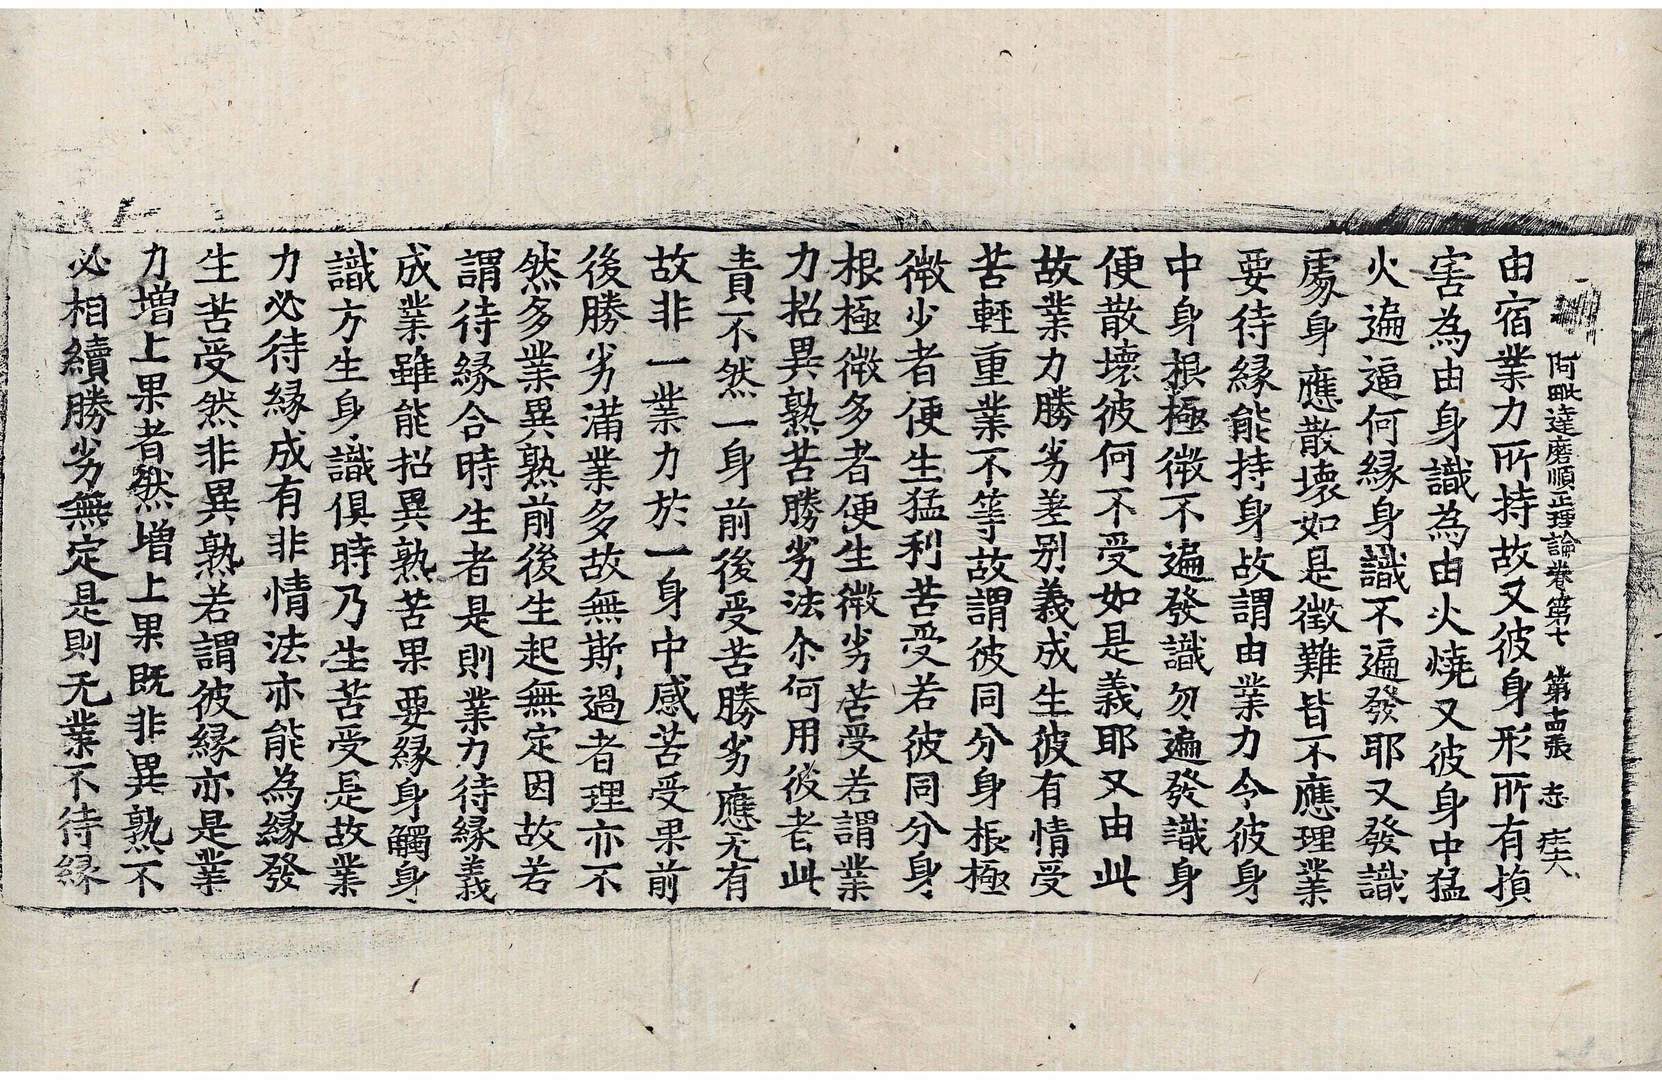 阿毗達磨順正理論卷第七 第十四張 志
由宿業力所持故又彼身形所有損
害為由身識為由火燒又彼身中猛
火遍逼何緣身識不遍發耶又發識
處身應散壞如是徵難皆不應理業
要待緣能持身故謂由業力今彼身
中身根極微不遍發識勿遍發識身
便散壞彼何不受如是義耶又由此
故業力勝劣差別義成生彼有情受
苦輕重業不等故謂彼同分身根極
微少者便生猛利苦受若彼同分身
根極微多者便生微劣苦受若謂業
力招異熟苦勝劣法尒何用彼者此
責不然一身前後受苦勝劣應无有
故非一業力於一身中感苦受果前
後勝劣滿業多故無斯過者理亦不
然多業異熟前後生起無定因故若
謂待緣合時生者是則業力待緣義
成業雖能招異熟苦果要緣身觸身
識方生身識俱時乃生苦受是故業
力必待緣成有非情法亦能為緣發
生苦受然非異熟若謂彼緣亦是業
力增上果者然增上果既非異熟不
必相續勝劣無定是則无業不待緣